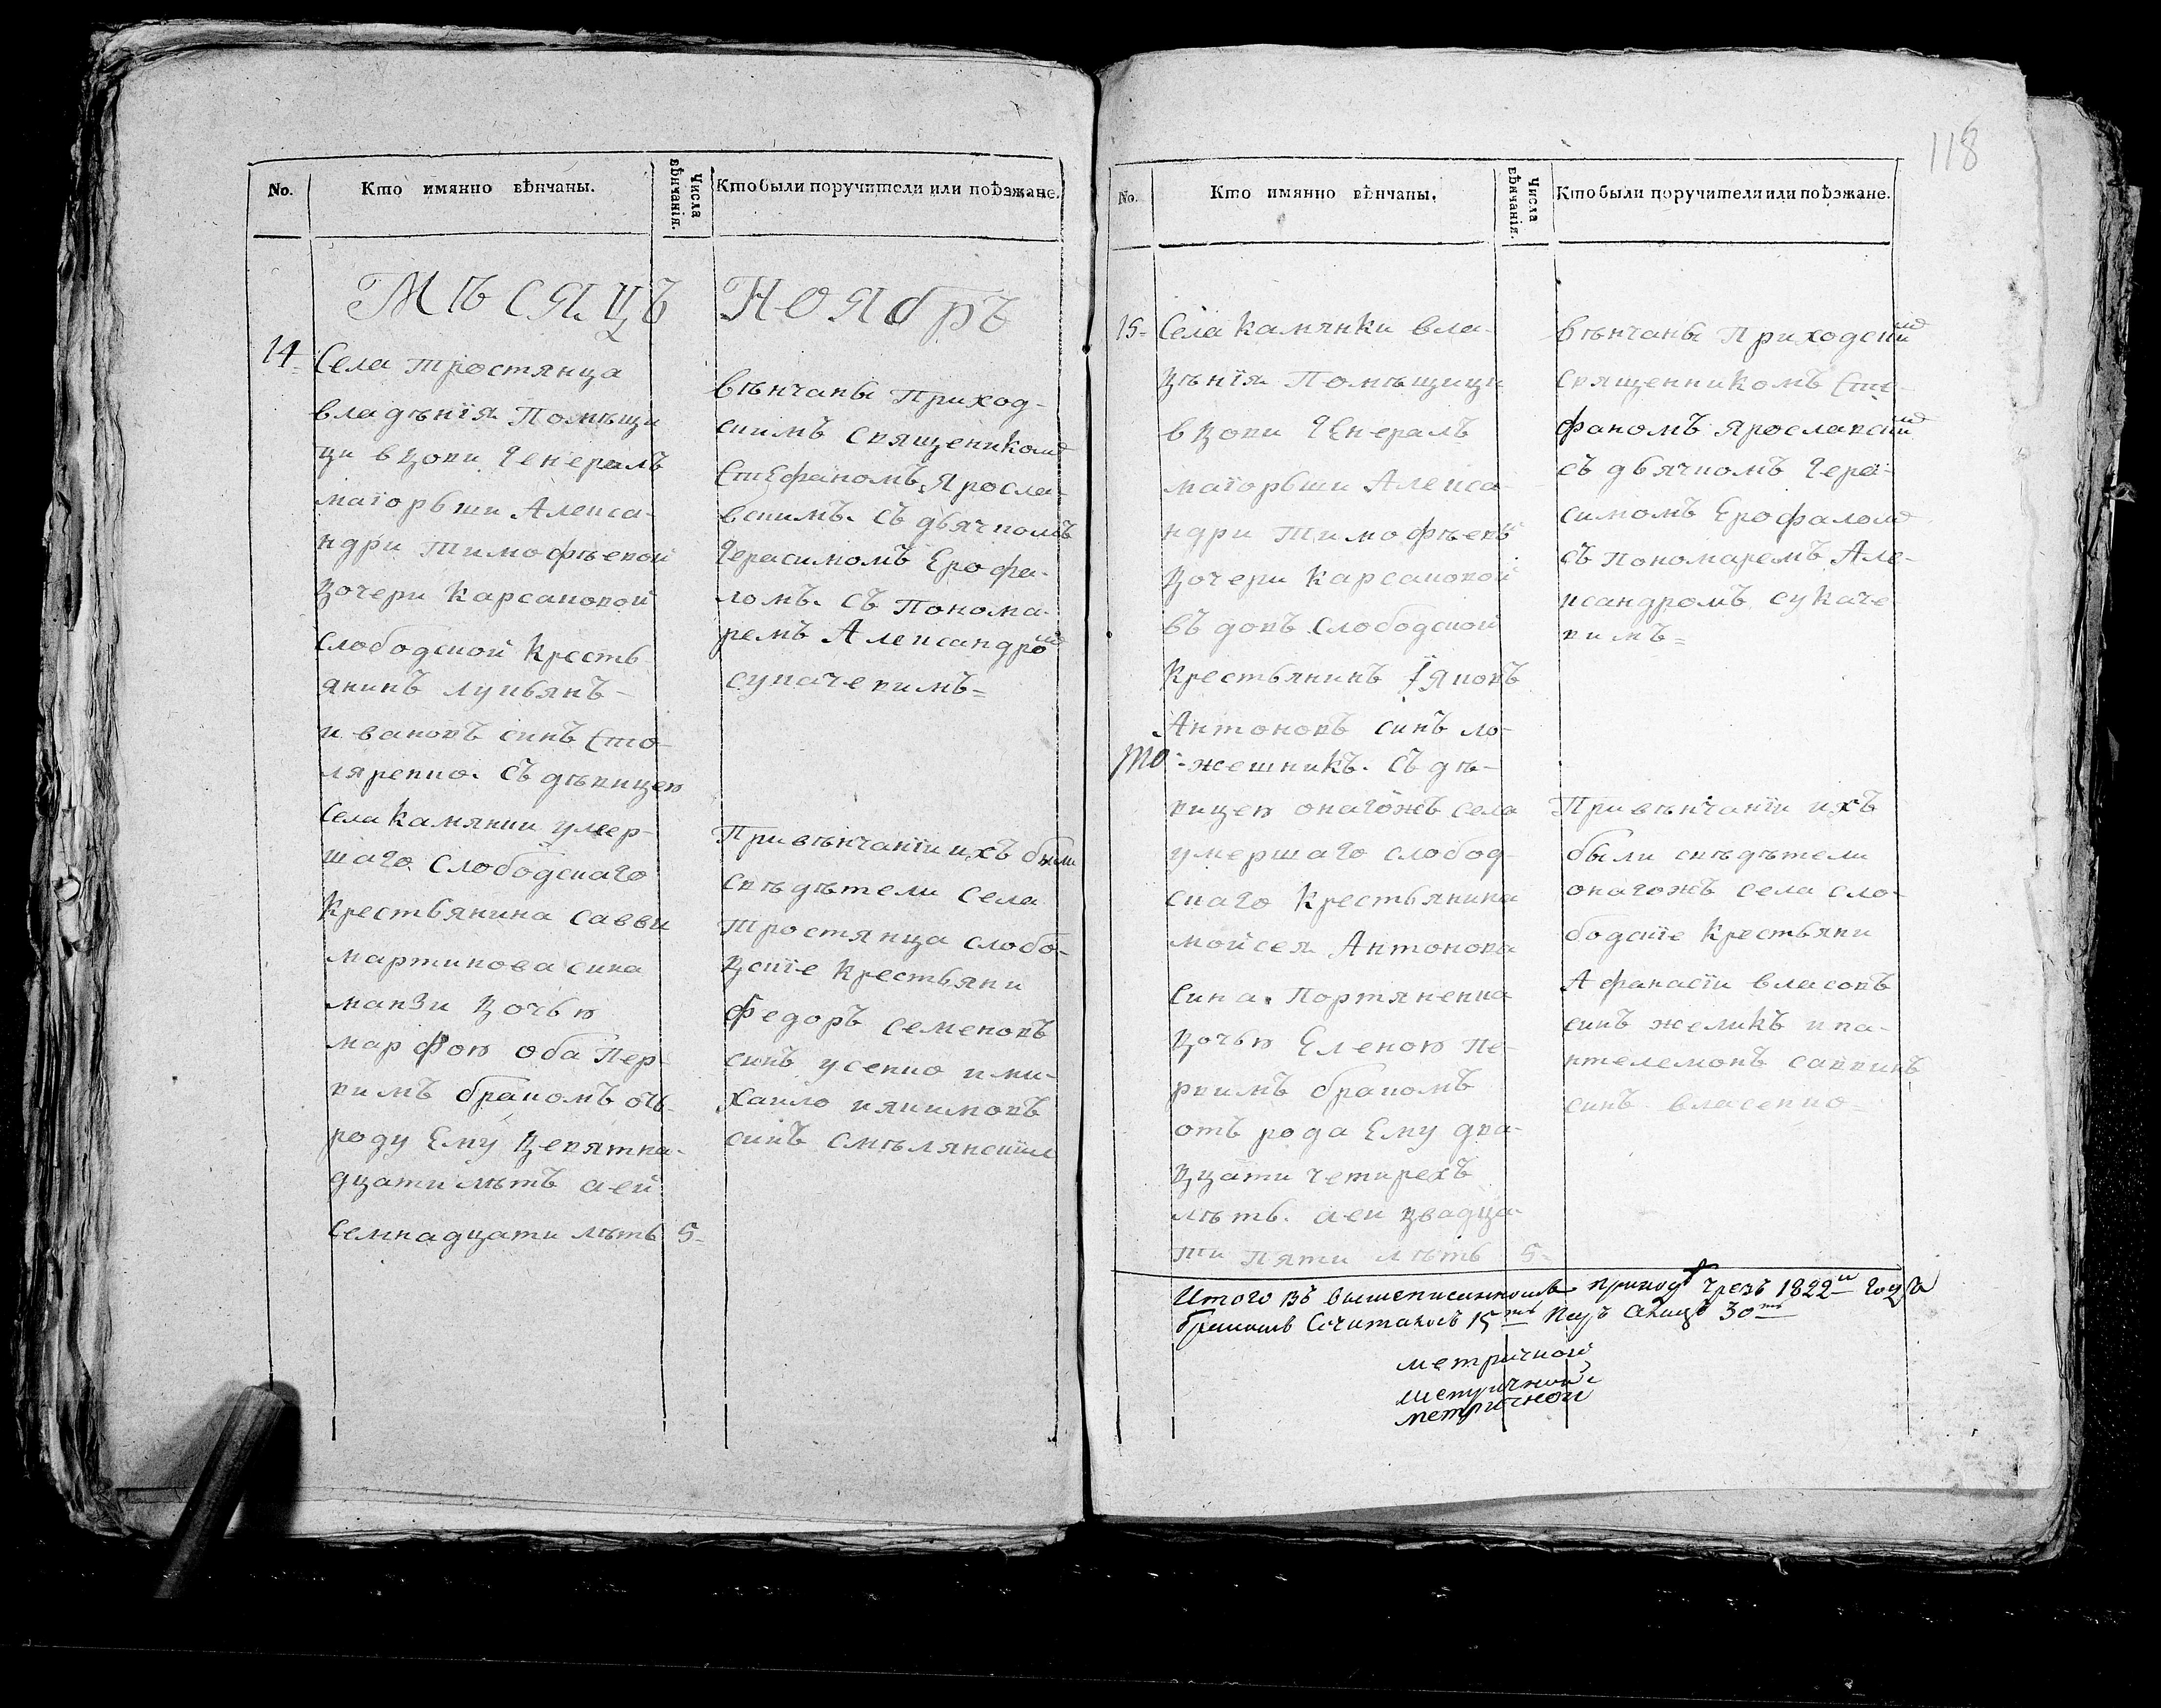 118
No.
Кто имянно вѣнчаны.
Числа вѣнчанія.
Кто были поручители или поѣзжане.
Мѣсяцъ Ноябръ
14.
Села Тростянца
владѣнїя Помѣщи
ци вдови Генералъ
маїорьши Алекса-
ндри Тимофѣевой
дочери Карсаковой
слободской Кресть
янинъ лукьянъ-
ивановъ синъ Сто-
ляренко. Съ дѣвицею
Села Камянки умер-
шаго Слободскаго
Крестьянина савви
мартинова сина
манзи дочью
марфою оба Пер-
вимъ бракомъ отъ
роду Ему Девятна-
дцати лѣтъ аей
Семнадцати лѣтъ 5-
вѣнчаны Приход-
скимъ священикомъ
Стефаномъ Яросла-
вскимъ. Съ дьячкомъ
Герасимомъ Ерофа-
ломъ. Съ Понома-
ремъ Александромъ
сукачевимъ=
При вѣнчанїи ихъ были
свѣдѣтели Села
Тростянца слобо-
дскїе Крестьяни
Федоръ семеновъ
синъ усенко ими-
хаило якимовъ
синъ смѣлянскїи
No.
Кто имянно вѣнчаны.
Числа вѣнчанія.
Кто были поручители или поѣзжане.
15-
Села Камянки вла-
дѣнїя Помѣщици
вдови Генералъ
маїорьши Алекса-
ндри Тимофѣевой
дочери Карсаковой
въдовъ Слободской
Крестьянинъ Їяковъ
Антоновъ синъ ло-
то-жешникъ. Съ дѣ-
вицею онагожъ села
умершаго слобод-
скаго Крестьянина
мойсея Антонова
Сина. Портяненка
дочью Еленою пе-
рвимъ бракомъ
отъ рода Ему два-
дцати четирехъ
лѣтъ. аеи двадца-
ти пяти лѣтъ 5-
вѣнчаны Приходскимъ
священникомъ Сте-
фаномъ Ярославскимъ
съ дьячкомъ Гера-
симомъ Ерофаломъ
съ Пономаремъ Але-
ксандромъ сукаче
вимъ=
При вѣнчанїи ихъ
были свѣдѣтели
онагожъ села сло-
бодскїе Крестьяни
Афанасїи власовъ
синъ желикъ ипа-
нтелемонъ саввинъ
синъ власенко=
Итого въ вышеписанномъ приходѣ чрезъ 1822й годъ
браковъ Считаховъ 15ть паръ алицъ 30ть
метричной
метричной
метричной